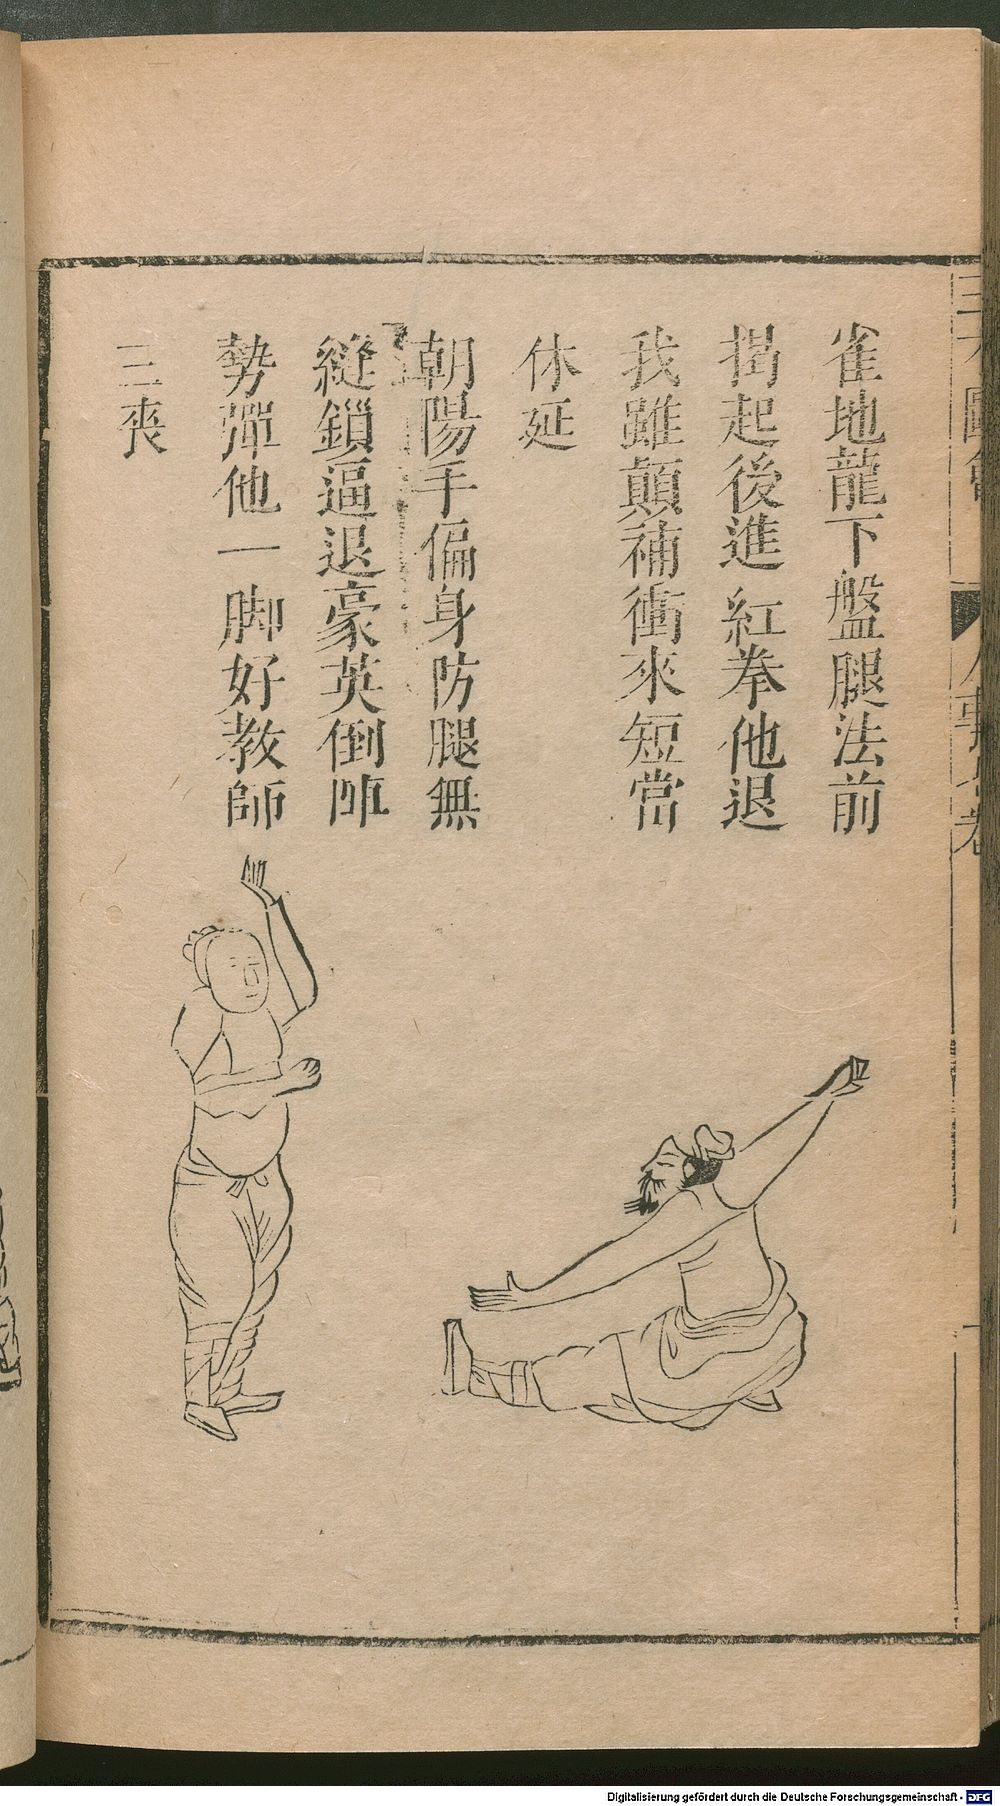 三才圖會
雀地龍下盤腿法前
揭起後進紅拳他退
我雖顛補衝來短當
休延
朝陽手偏身防腿無
縫鎖逼退豪英倒陣
勢彈他一脚好教師
三喪
Digitalisierung gefördert durch die Deutsche Forschungsgemeinschaft - DFG